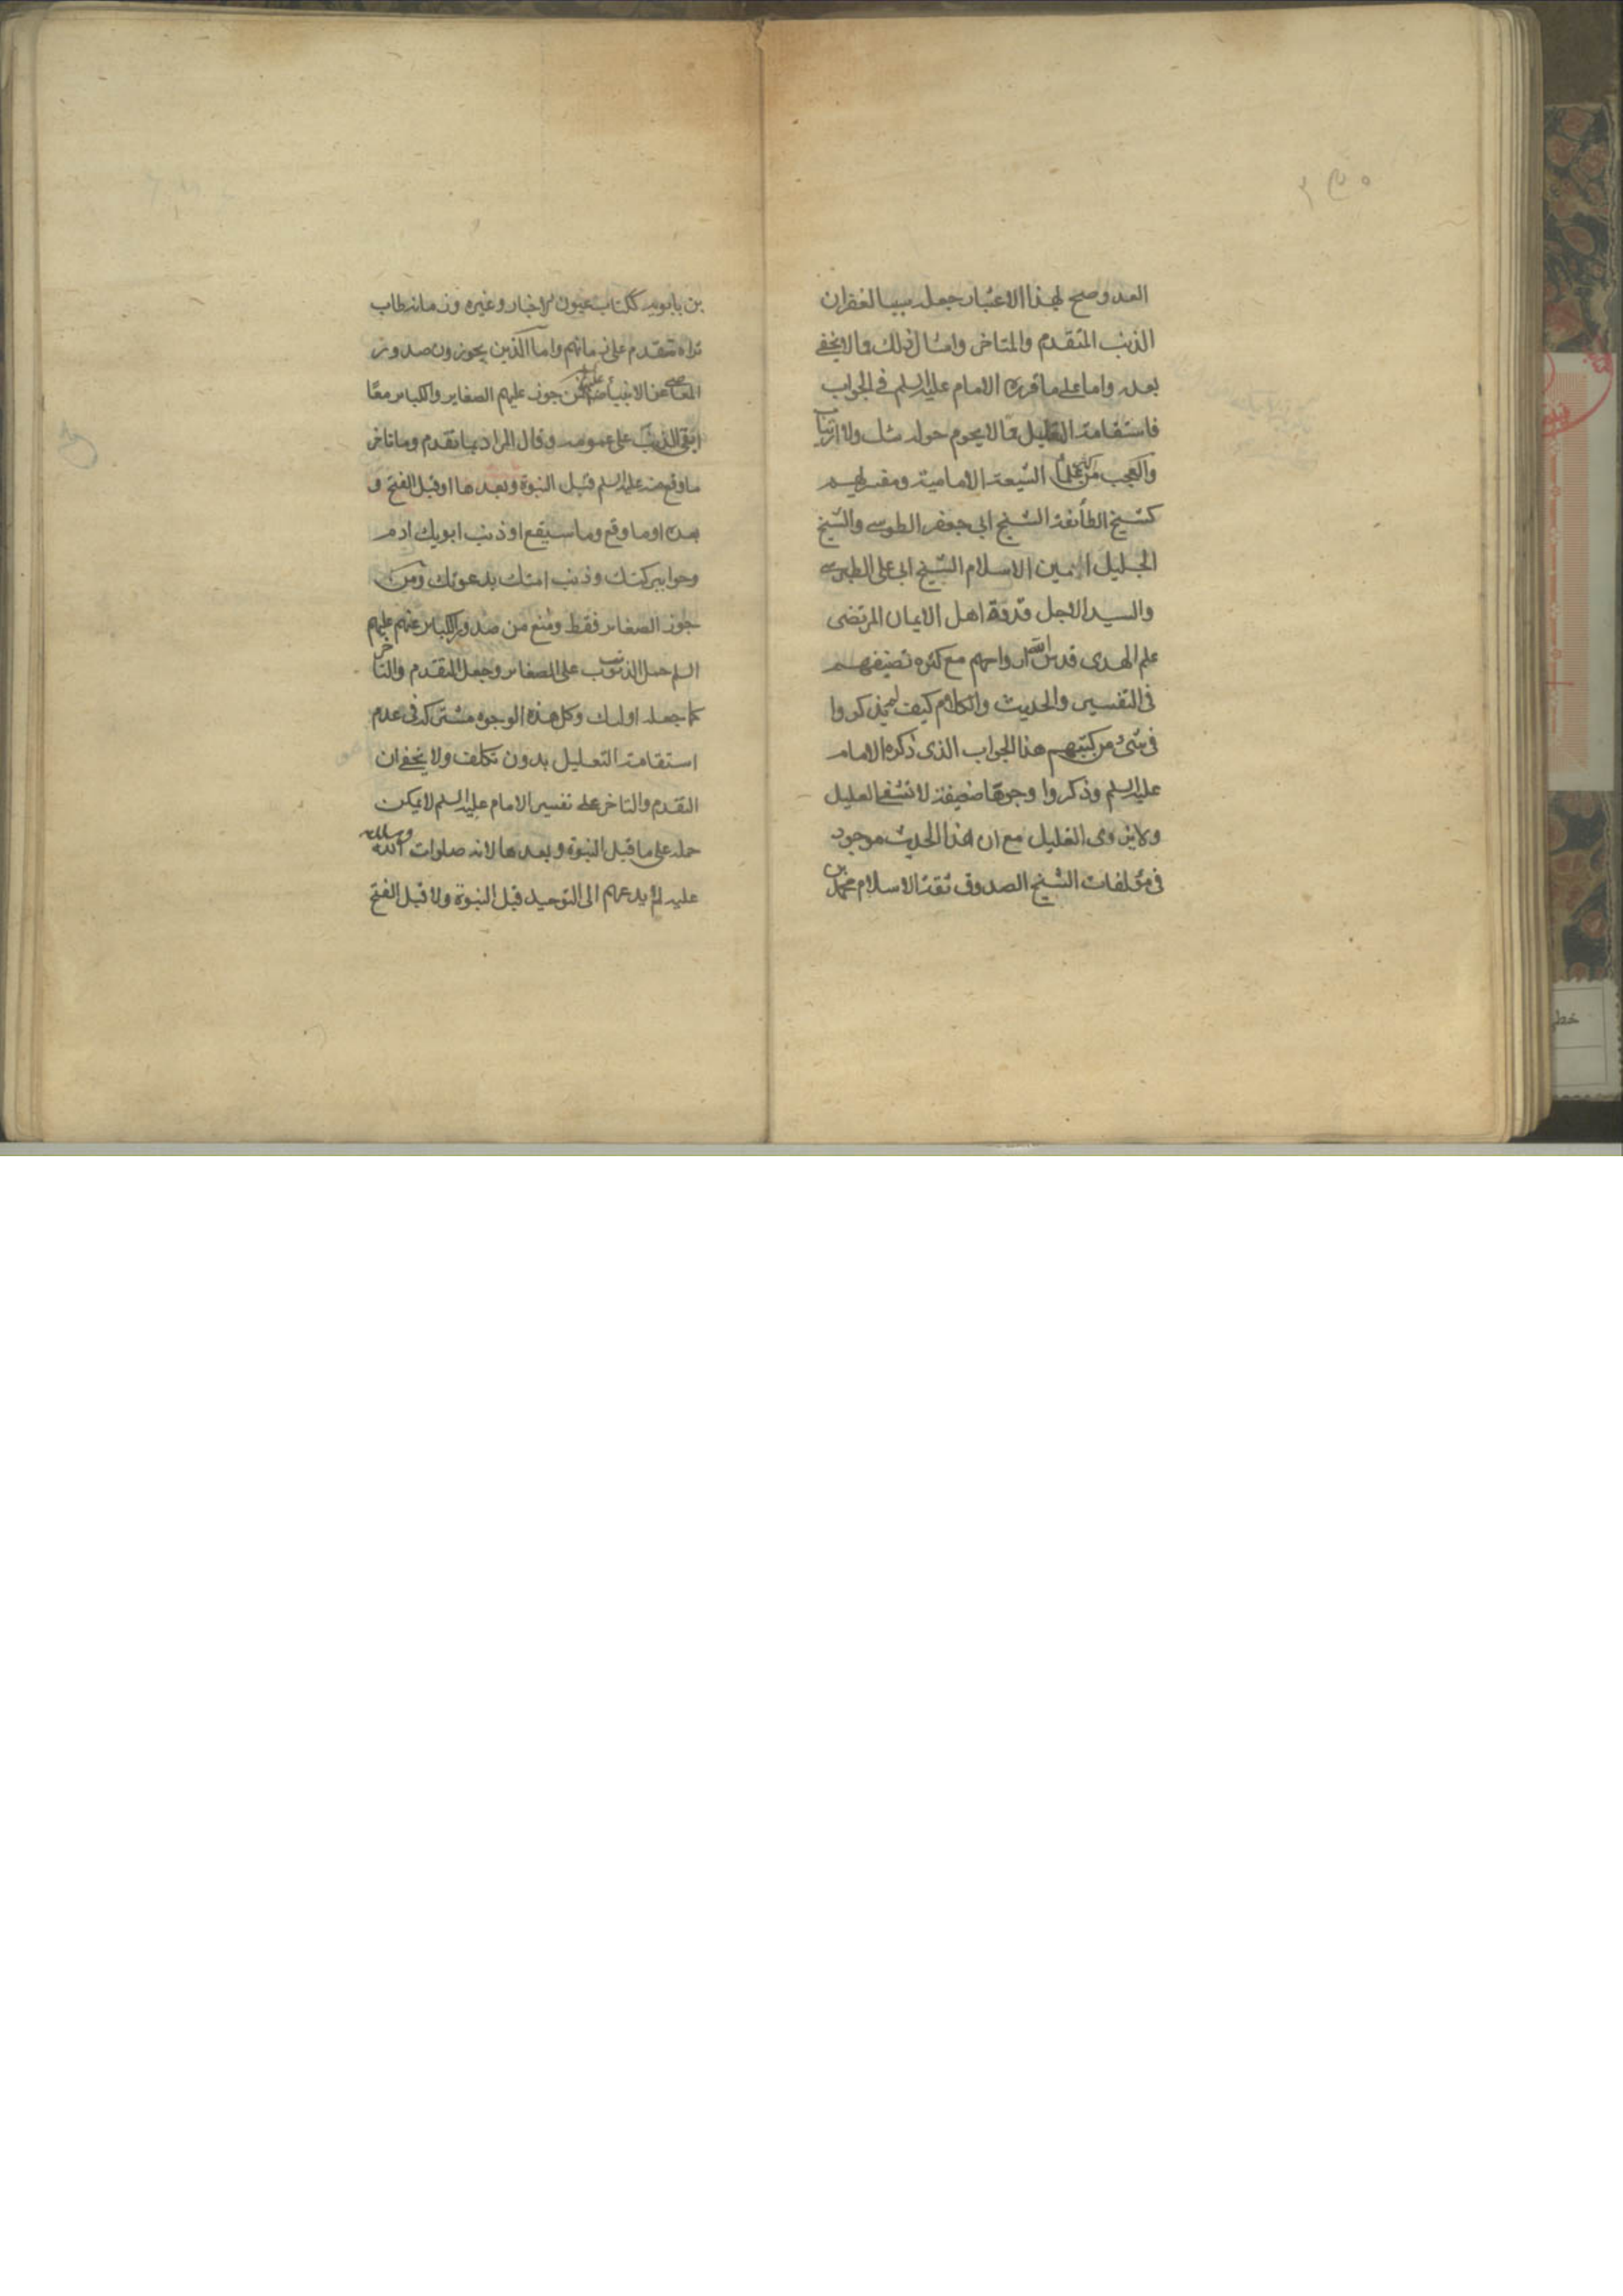 العدو صح لهذا الاعتبار جعله سببا لغفران
الذنب المتقدم والمتاخر وامثال ذلك مما لا يخفى
بعده واما على ما قرره الامام عليه السلم في الجواب
فاستقامة التعليل مما لا يحوم حوله شك ولا ارتياب
والعجب من علماء الشيعة الامامية ومفسريهم
كشيخ الطائفة الشيخ ابي جعفر الطوسي والشيخ
الجليل امين الاسلام الشيخ ابي على الطبرسي
والسيد الاجل قدوة اهل الايمان المرتضى
علم الهدى قدس الله ارواحهم مع كثره تصنيفهم
فى التفسير والحديث والكلام كيف لم يذكروا
فى شئ من كتبهم هذا الجواب الذى ذكره الامام
عليه السلم وذكروا وجوها ضعيفة لا تشفى العليل
ولا تروى الغليل مع ان هذا الحديث موجود
فى مؤلفات الشيخ الصدوق ثقة الاسلام محمد بن
بن بابويه ككتاب عيون الاخبار وغيره وزمانه طاب
ثراه متقدم على زمانهم واما الذين يجوزون صدور
المعاصي عن الانبياء فمن جوز عليهم الصغاير والكباير معًا
ابقى الذنب على عمومه وقال المراد بما تقدم وما تاخر
ما وقع منه عليه السلم قبل النبوة وبعدها او قبل الفتح و
بعده او ما وقع وما سيقع او ذنب ابويك ادم
وحوا ببركتك وذنب امتك بدعوتك ومن
جوز الصغاير فقط ومنع من صدور الكباير عنهم عليهم
السلم حمل الذنب على الصغاير وجعل المتقدم والمتاخر
كما جعله اولئك وكل هذه الوجوه مشتركة فى عدم
استقامة التعليل بدون تكلف ولا يخفى ان
التقدم والتاخر على تفسير الامام عليه السلم لا يمكن
حمله على ما قبل النبوة وبعدها لانه صلوات الله وسلامه
عليه لم يدعهم الى التوحيد قبل النبوة ولا قبل الفتح